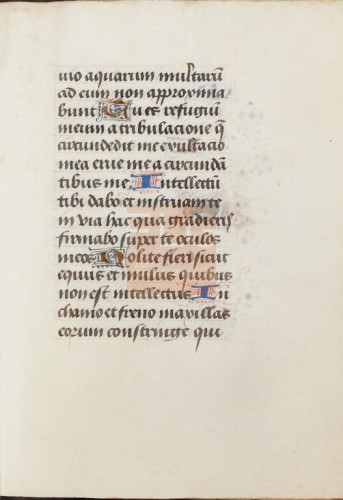 uio aquarum multarū
ad eum non approxima
bunt Tu es refugiū
meum a tribulacione q̄
circundedit me exultacio
mea erue me a circundā
tibus me Intellectū
tibi dabo et instruam te
in via hac qua gradieris
firmabo super te oculos
meos Nolite fieri sicut
equus et mulus quibus
non est intellectus In
chamo et freno maxillas
eorum constringe qui